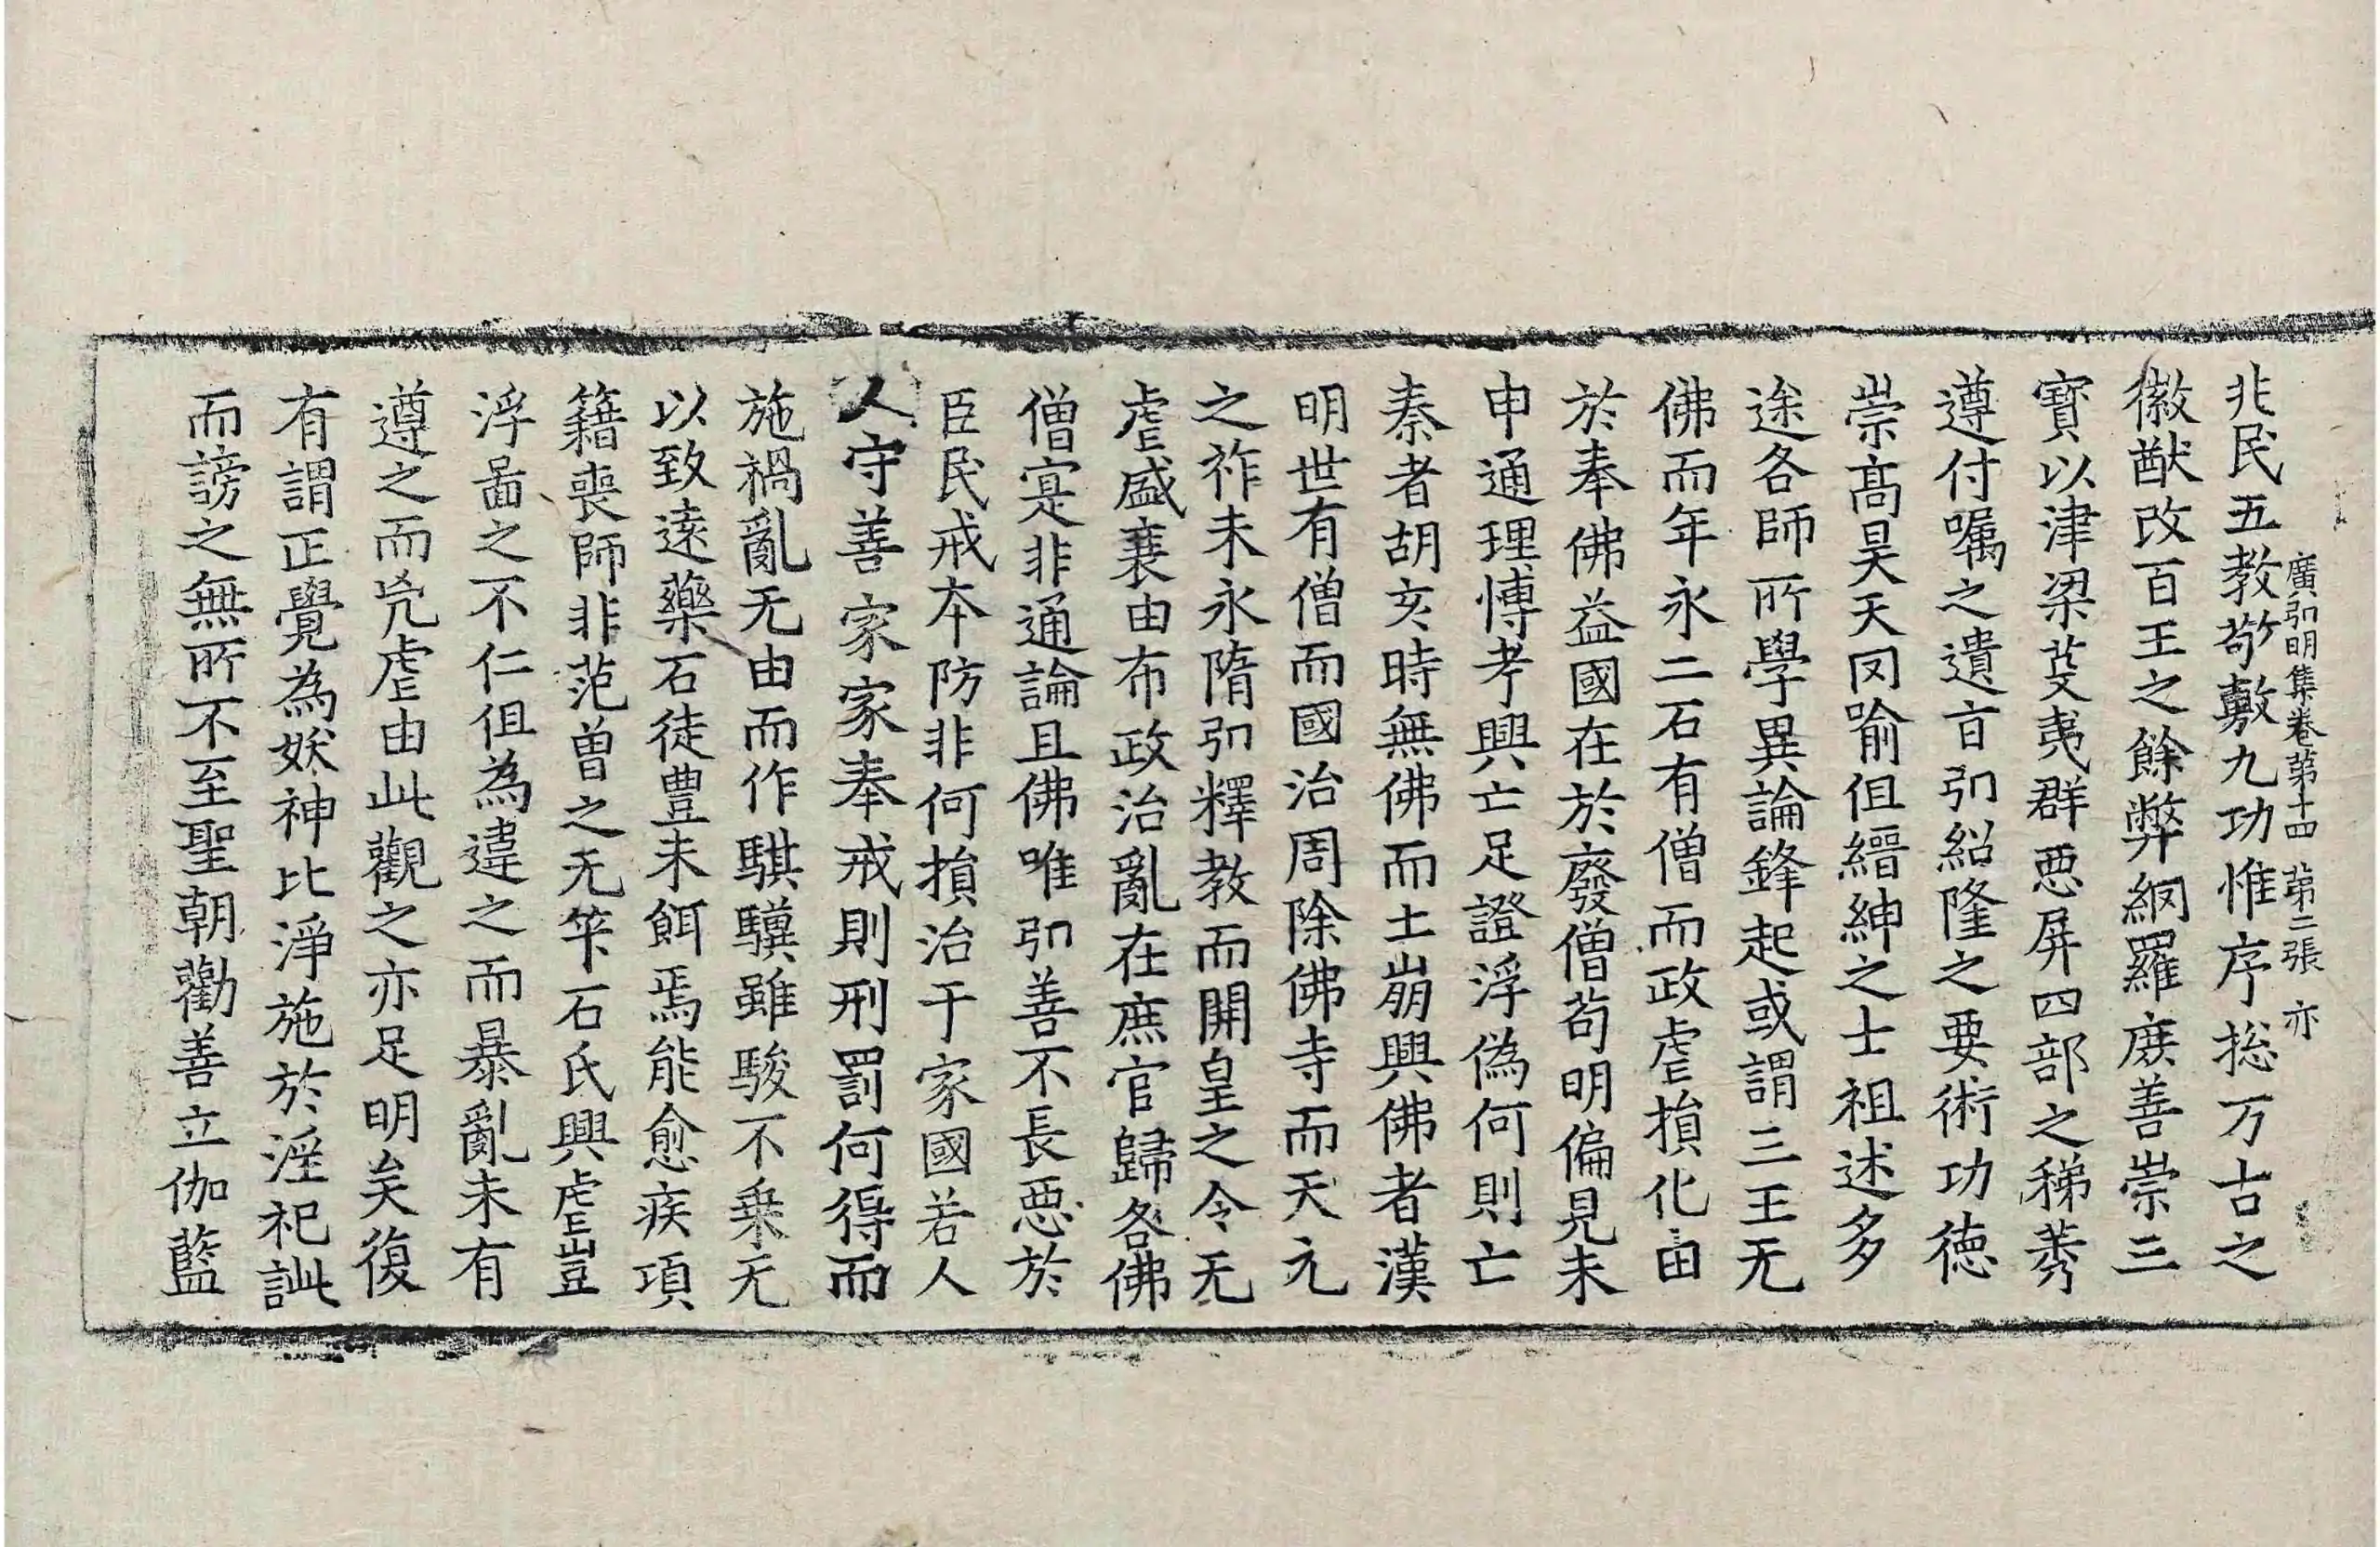 兆民五教敬敷九功惟序捴万古之
廣弘明集卷第十四 第二張 亦
徽猷改百王之餘弊網羅庶善崇三
寶以津梁芟夷群惡屏四部之稊莠
遵付囑之遺旨弘紹隆之要術功徳
崇髙昊天罔喻但縉紳之士祖述多
途各師所學異論鋒起或謂三王无
佛而年永二石有僧而政虐損化由
於奉佛益國在於廢僧苟明偏見未
申通理博考興亡足證浮偽何則亡
秦者胡亥時無佛而土崩興佛者漢
明世有僧而國治周除佛寺而天元
之祚未永隋弘釋教而開皇之令无
虐盛衰由布政治亂在庶官歸咎佛
僧寔非通論且佛唯弘善不長惡於
臣民戒本防非何損治于家國若人
人守善家家奉戒則刑罰何得而
施禍亂无由而作騏驥雖駿不乗无
以致遠藥石徒豊未餌焉能愈疾項
籍喪師非范曽之无筭石氏興虐豈
浮啚之不仁但為違之而暴亂未有
遵之而凶虐由此觀之亦足明矣復
有謂正覺為妖神比淨施於淫祀訿
而謗之無所不至聖朝勸善立伽藍